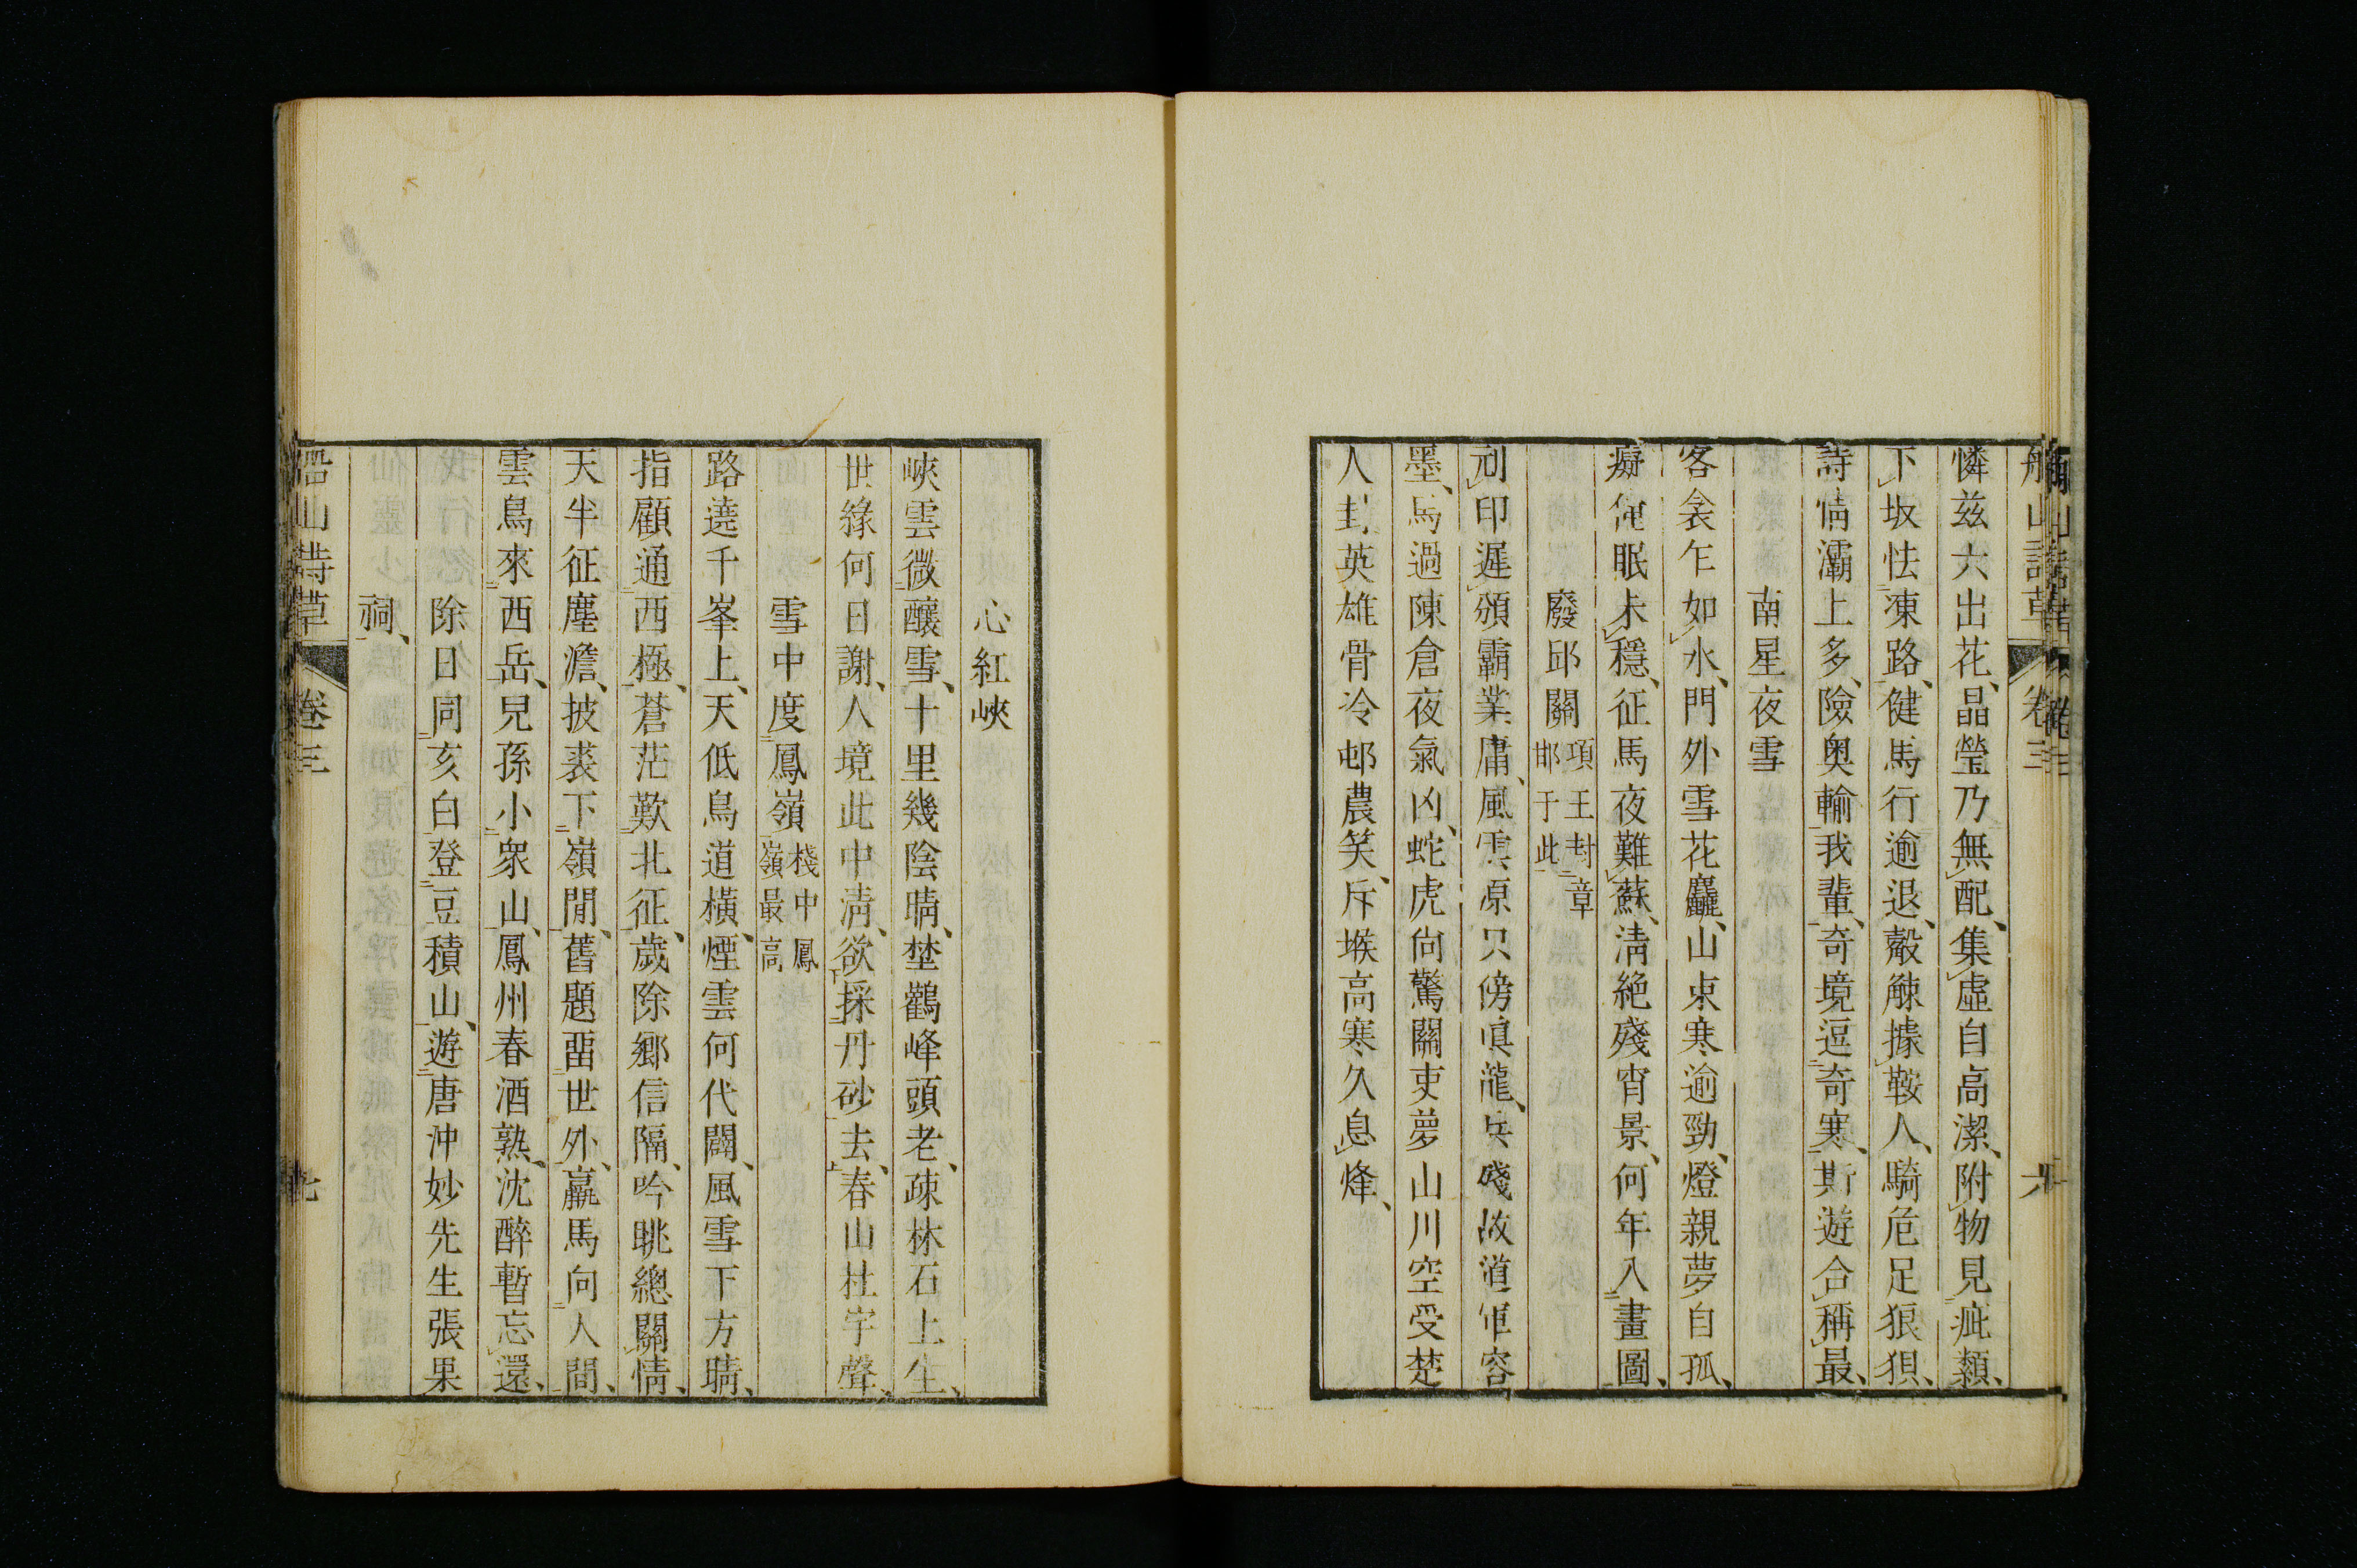 船山詩草 卷三 六
憐兹六出花晶瑩乃無配集虛自高潔附物見疵纇
下坂怯凍路健馬行逾退觳觫據鞍人騎危足狼狽
詩情灞上多險奥輸我輩奇境逗奇寒斯遊合稱最
南星夜雪
客衾乍如水門外雪花麤山東寒逾勁燈親夢自孤
癡僮眠未穩征馬夜難蘇淸絶殘宵景何年入畫圖
廢邱關項王封章邯于此
刓印遲頒霸業庸風雲原只傍眞龍兵殘故道軍容
墨馬過陳倉夜氣凶蛇虎尙驚關吏夢山川空受楚
人封英雄骨冷邨農笑斥堠高寒久息烽
心紅峽
峽雲微釀雪十里幾陰晴埜鸛峰頭老疎林石上生
世緣何日謝人境此中淸欲採丹砂去春山杜宇聲
雪中度鳳嶺棧中鳳嶺最高
路遶千峯上天低鳥道橫煙雲何代闢風雪下方晴
指顧通西極蒼茫歎北征歲除鄉信隔吟眺總關情
天半征塵澹披裘下嶺閒舊題畱世外羸馬向人間
雲鳥來西岳兒孫小衆山鳳州春酒熟沈醉暫忘還
除日同亥白登豆積山遊唐沖妙先生張果
祠
船山詩草 卷三 七